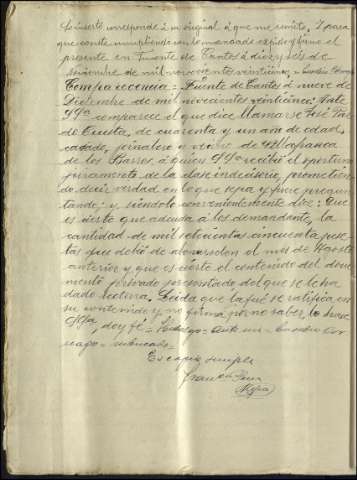 Lo inserto corresponde á su original á que me remito. Y para
que conste cumpliendo con lo mandado expido y firmo el
presente en Fuente de Cantos á diez y seis de
Diciembre de mil novecientos veinticinco =
Comparecencia = Fuente de Cantos á nueve de
Diciembre de mil novecientos veinticinco: Ante
SSª comparece el que dice llamarse José
de Cuesta, de cuarenta y un años de edad,
casado, jornalero y vecino de Villafranca
de los Barros á quien SSª recibió el oportuno
juramento de la clase indecisorio, prometien
do decir verdad en lo que sepa y fuere pregun
tando; y siéndolo convenientemente dice: Que
es cierto que adeuda á los demandante, la
cantidad de mil setecientas cincuenta pese
tas que debió de abonarselon el mes de Agosto
anterior y que es cierto el contenido del docu
mento privado presentado del que se le ha
dado lectura. Leida que la fué se ratifica en
su contenido y no firma por no saber, lo hace
SSª, doy fé = = Ante mi =
= rubricado =
Es copia simple